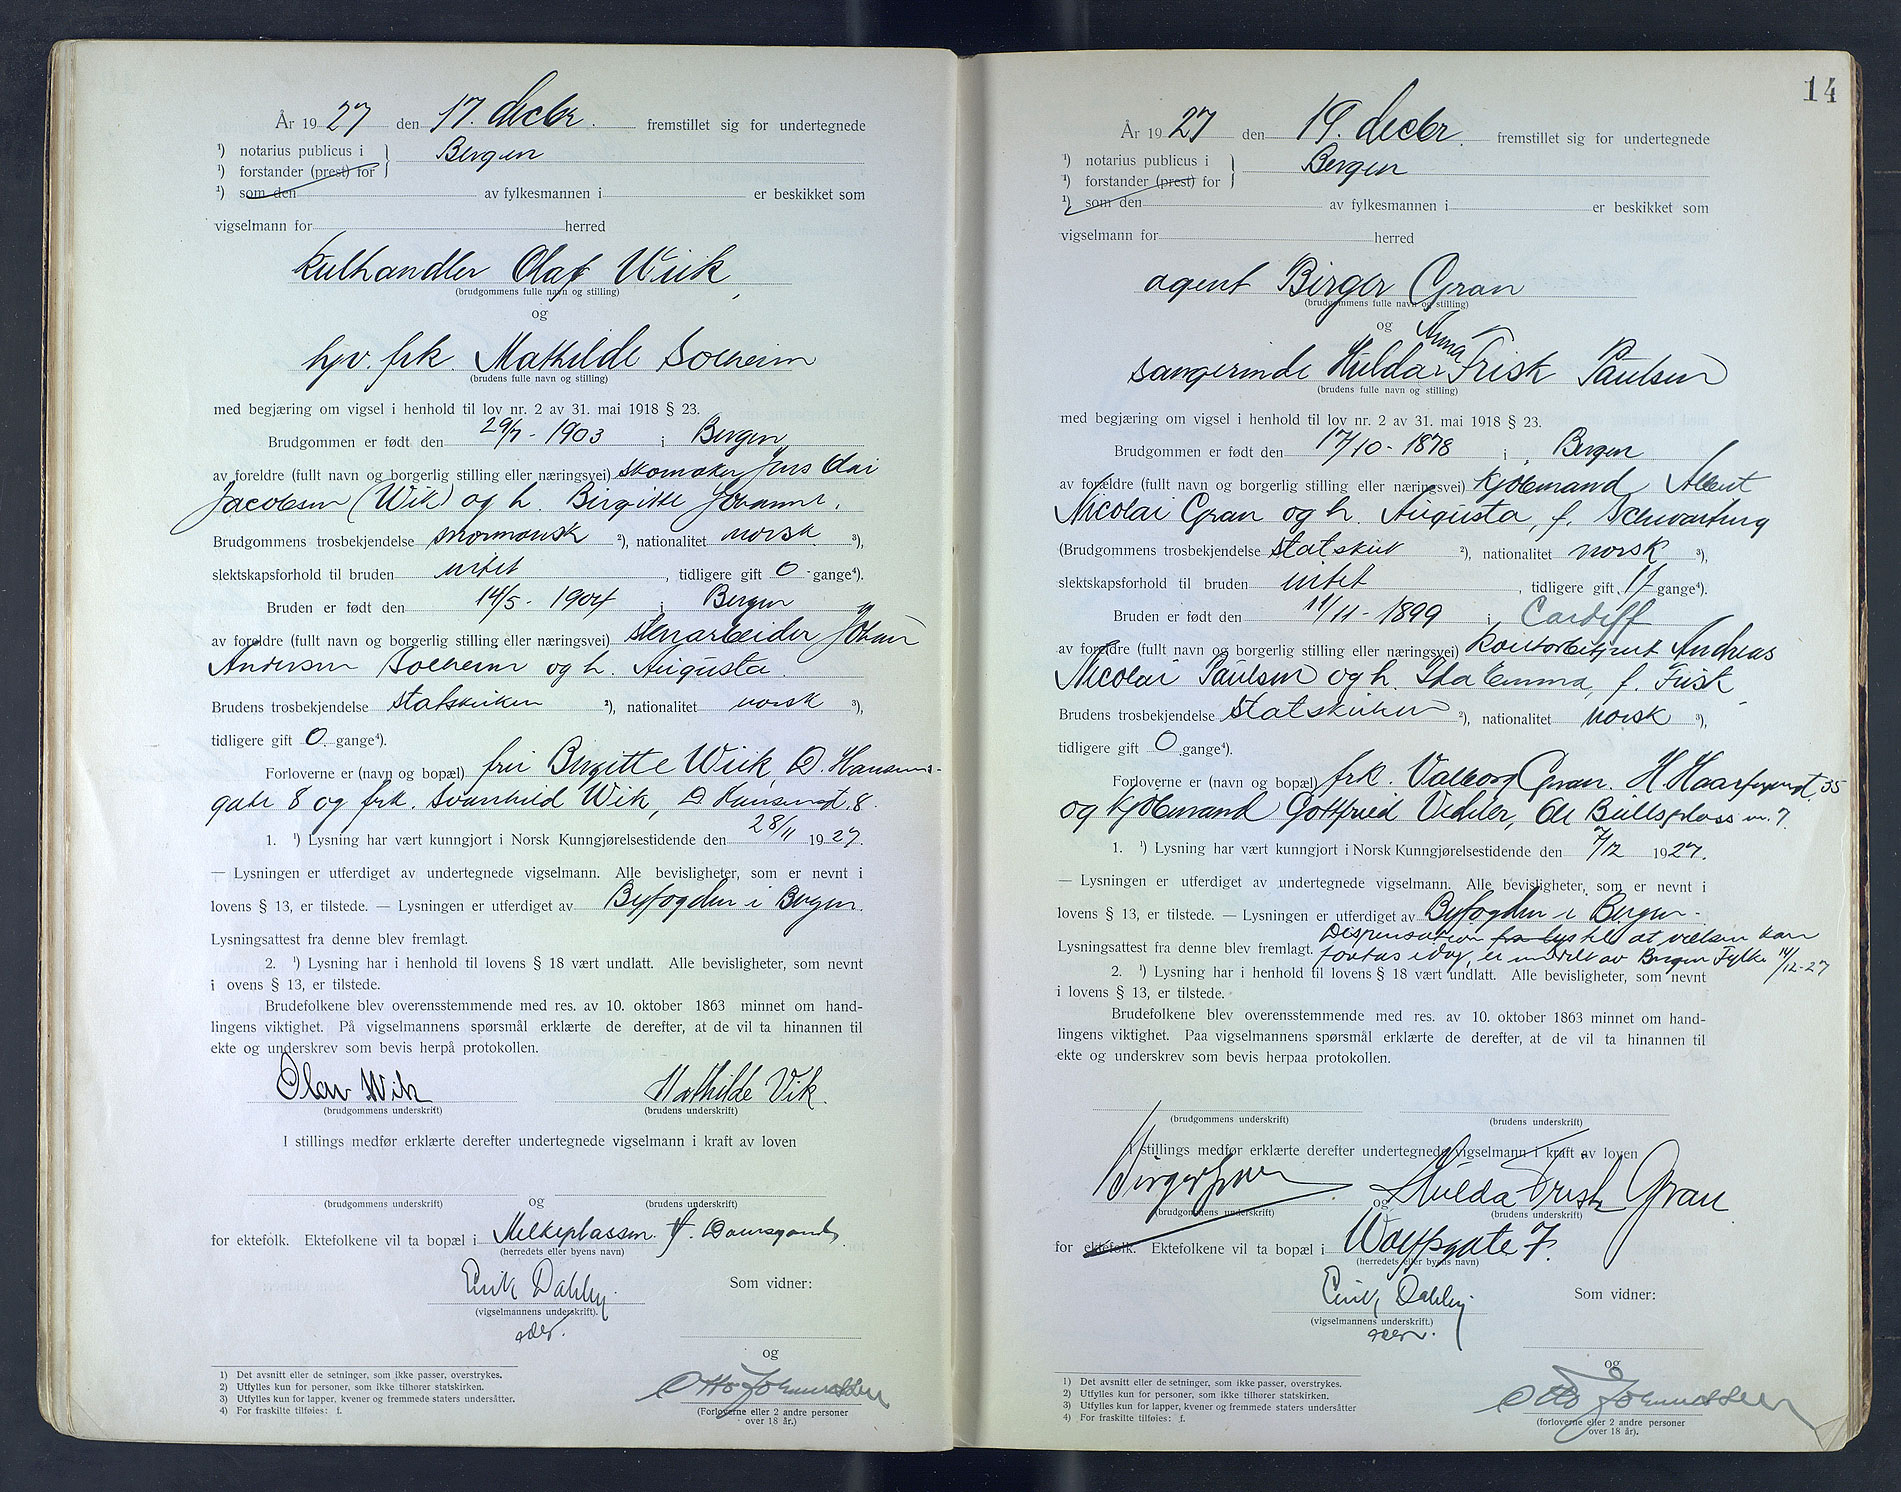 År 1927 den 17. decbr. fremstillet sig for undertegnede
¹) notarius publicus i } Bergen
¹) forstander (prest) for
¹) som den av fylkesmannen i er beskikket som
vigselmann for herred
kulhandler Olaf Wiik,
(brudgommens fulle navn og stilling)
og
hjv. frk. Mathilde Solheim
(brudens fulle navn og stilling)
med begjæring om vigsel i henhold til lov nr. 2 av 31. mai 1918 § 23.
Brudgommen er født den 29/7 - 1903 i Bergen,
av foreldre (fullt navn og borgerlig stilling eller næringsvei) skomaker Jens Olai
Jacobsen (Wik) og h. Birgitte Johanne.
Brudgommens trosbekjendelse mormonsk ²), nationalitet norsk ³),
slektskapsforhold til bruden intet, tidligere gift 0 gange⁴).
Bruden er født den 14/5 - 1904 i Bergen
av foreldre (fullt navn og borgerlig stilling eller næringsvei) stenarbeider Johan
Andersen Solheim og h. Augusta.
Brudens trosbekjendelse statskirken ²), nationalitet norsk ³),
tidligere gift 0 gange⁴).
Forloverne er (navn og bopæl) fru Birgitte Wiik, D. Hansens-
gate 8 og frk. Svanhild Wik, D Hansensgt. 8.
1. ¹) Lysning har vært kunngjort i Norsk Kunngjørelsestidende den 28/11 1927.
— Lysningen er utferdiget av undertegnede vigselmann. Alle bevisligheter, som er nevnt i
lovens § 13, er tilstede. — Lysningen er utferdiget av Byfogden i Bergen.
Lysningsattest fra denne blev fremlagt.
2. ¹) Lysning har i henhold til lovens § 18 vært undlatt. Alle bevisligheter, som nevnt
i ovens § 13, er tilstede.
Brudefolkene blev overensstemmende med res. av 10. oktober 1863 minnet om hand-
lingens viktighet. På vigselmannens spørsmål erklærte de derefter, at de vil ta hinannen til
ekte og underskrev som bevis herpå protokollen.
Olav Wik Mathilde Vik.
(brudgommens underskrift) (brudens underskrift)
I stillings medfør erklærte derefter undertegnede vigselmann i kraft av loven
og
(brudgommens underskrift) (brudens underskrift)
for ektefolk. Ektefolkene vil ta bopæl i Melkeplassen
(herredets eller byens navn)
Erik Dahlby Som vidner:
(vigselmannens underskrift).
og
Otto Johannessen
(Forloverne eller 2 andre personer
over 18 år.)
1) Det avsnitt eller de setninger, som ikke passer, overstrykes.
2) Utfylles kun for personer, som ikke tilhører statskirken.
3) Utfylles kun for lapper, kvener og fremmede staters undersåtter.
4) For fraskilte tilføies: f.
14
År 1927 den 19. decbr. fremstillet sig for undertegnede
¹) notarius publicus i } Bergen
¹) forstander (prest) for
¹) som den av fylkesmannen i er beskikket som
vigselmann for herred
agent Birger Gran
(brudgommens fulle navn og stilling)
og
sangerinde Hulda Anna Frisk Paulsen
(brudens fulle navn og stilling)
med begjæring om vigsel i henhold til lov nr. 2 av 31. mai 1918 § 23.
Brudgommen er født den 17/10 - 1878 i Bergen
av forældre (fullt navn og borgerlig stilling eller næringsvei) kjøbmand Albert
Nicolai Gran og h. Augusta, f. Schwartung
(Brudgommens trosbekjendelse statskirk ²), nationalitet norsk ³),
slektskapsforhold til bruden intet, tidligere gift 1 f gange⁴).
Bruden er født den 11/11 - 1899 i Cardiff
av foreldre (fullt navn og borgerlig stilling eller næringsvei) kontorbetjent Andreas
Nicolai Paulsen og h. Ida Emma, f. Frisk,
Brudens trosbekjendelse statskirken ²), nationalitet norsk ³),
tidligere gift 0 gange⁴).
Forloverne er (navn og bopæl) frk. Valborg Gran. H Haarfagresgt. 35
og kjøbmand Gottfried Vedeler, Ole Bullsplass nr. 7.
1. ¹) Lysning har vært kunngjort i Norsk Kunngjørelsestidende den 7/12 1927.
— Lysningen er utferdiget av undertegnede vigselmann. Alle bevisligheter, som er nevnt i
lovens § 13, er tilstede. — Lysningen er utferdiget av Byfogden i Bergen.
Dispensation fra lys til at vielsen kan
Lysningsattest fra denne blev fremlagt. foretas idag, er meddelt av Bergen Fylke 14/12-27
2. ¹) Lysning har i henhold til lovens § 18 vært undlatt. Alle bevisligheter, som nevnt
i lovens § 13, er tilstede.
Brudefolkene blev overensstemmende med res. av 10. oktober 1863 minnet om hand-
lingens viktighet. Paa vigselmannens spørsmål erklærte de derefter, at de vil ta hinannen til
ekte og underskrev som bevis herpaa protokollen.
(brudgommens underskrift) (brudens underskrift)
I stillings medfør erklærte derefter undertegnede vigselmann i kraft av loven
Birger Gran og Hulda Frisk Gran
(brudgommens underskrift) (brudens underskrift)
for ektefolk. Ektefolkene vil ta bopæl i Wolffsgate 7.
(herredets eller byens navn)
Erik Dahlby Som vidner:
(vigselmannens underskrift.)
og
Otto Johannessen
(forloverne eller 2 andre personer
over 18 år).
1) Det avsnitt eller de setninger, som ikke passer, overstrykes.
2) Utfylles kun for personer, som ikke tilhører statskirken.
3) Utfylles kun for lapper, kvener og fremmede staters undersåtter
4) For fraskilte tilføies: f.